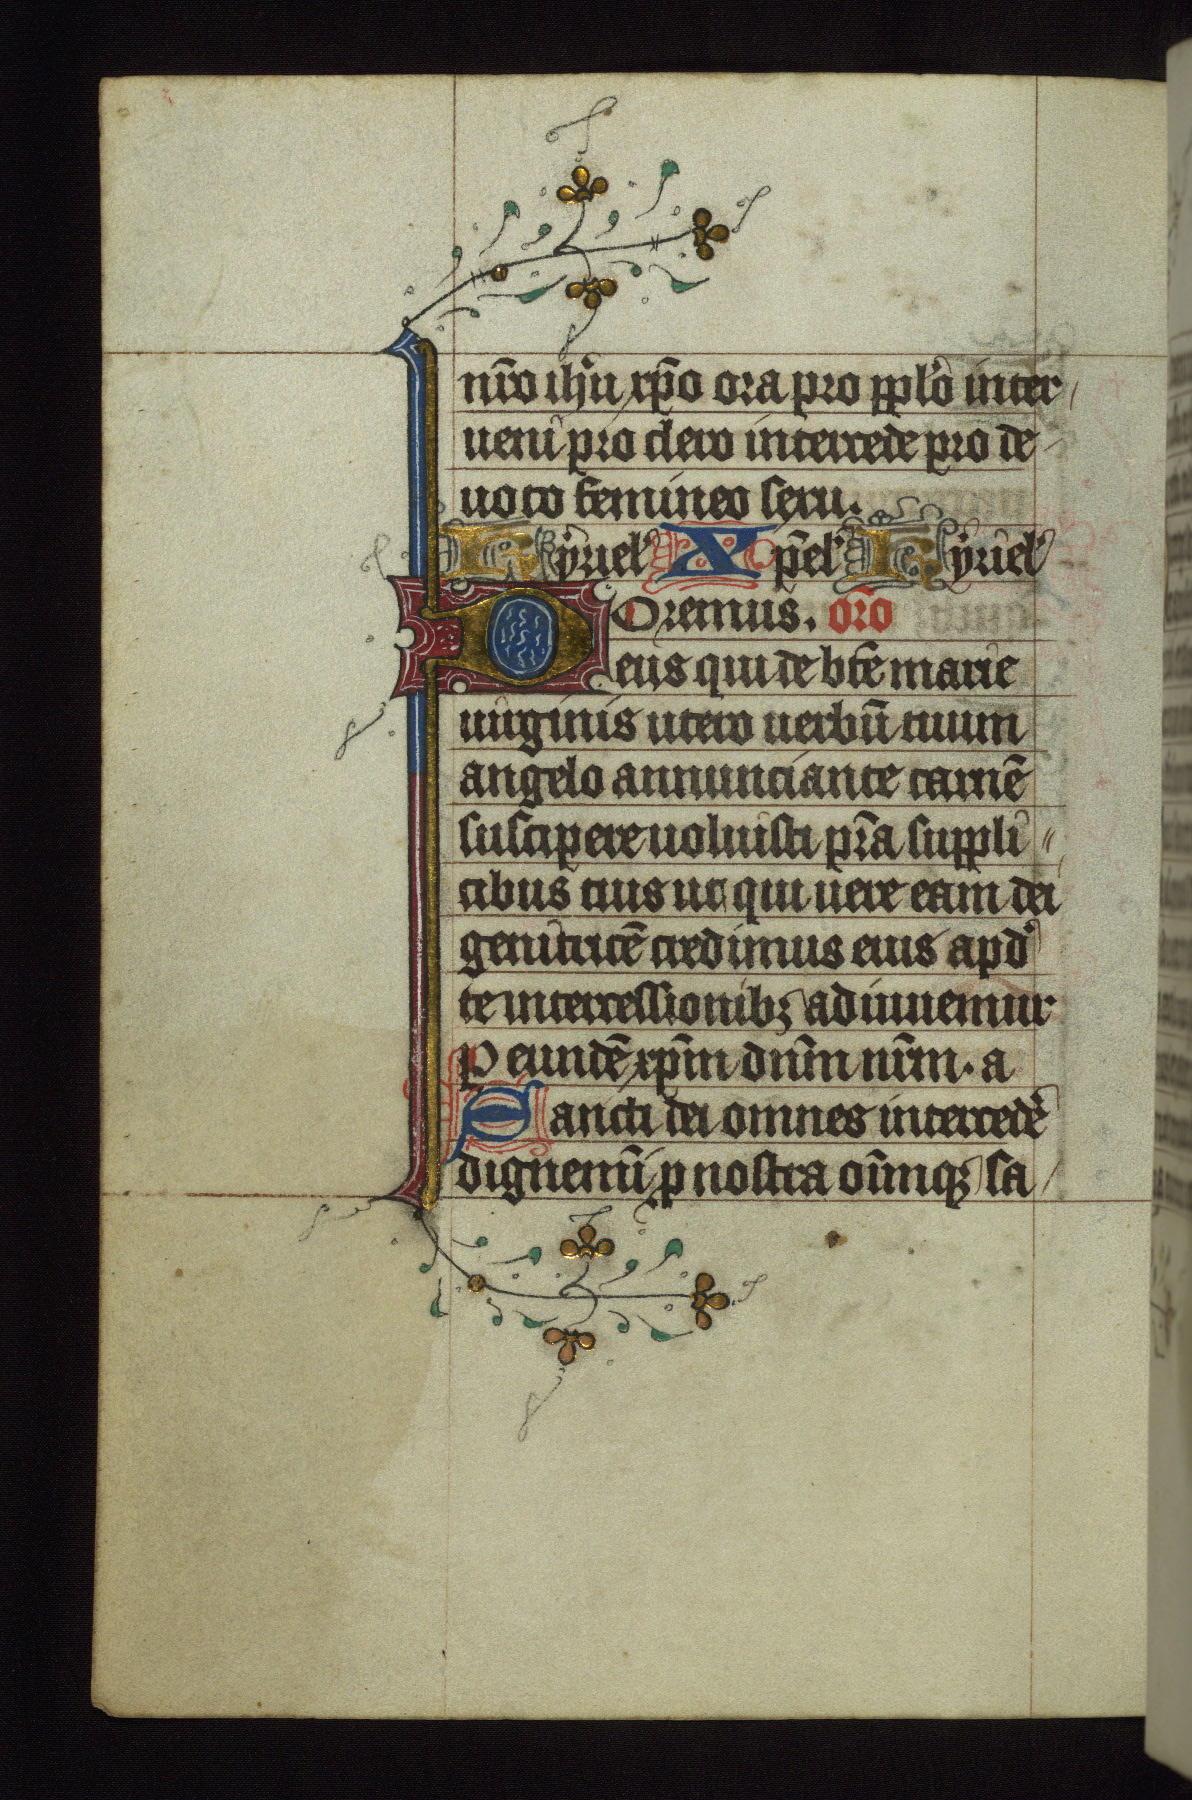 nr̄o ih̄u xp̄o ora pro ppl̄o inter
ueni pro clero intercede pro de
uoto femineo sexu.
Kyriel̄ Xp̄el̄ Kyriel̄
Oremus. or̄o
Deus qui de bt̄e marie
uirginis utero uerbū tuum
angelo annunciante carnē
suscipere uoluisti pr̄a suppli
cibus tuis ut qui uere eam dei
genitricē credimus eius apd̄
te intercessionibꝫ adiuuemur
P eundē xp̄m dn̄m nr̄m. a
Sancti dei omnes intercedē
dignemī p nostra oīmqꝫ sa